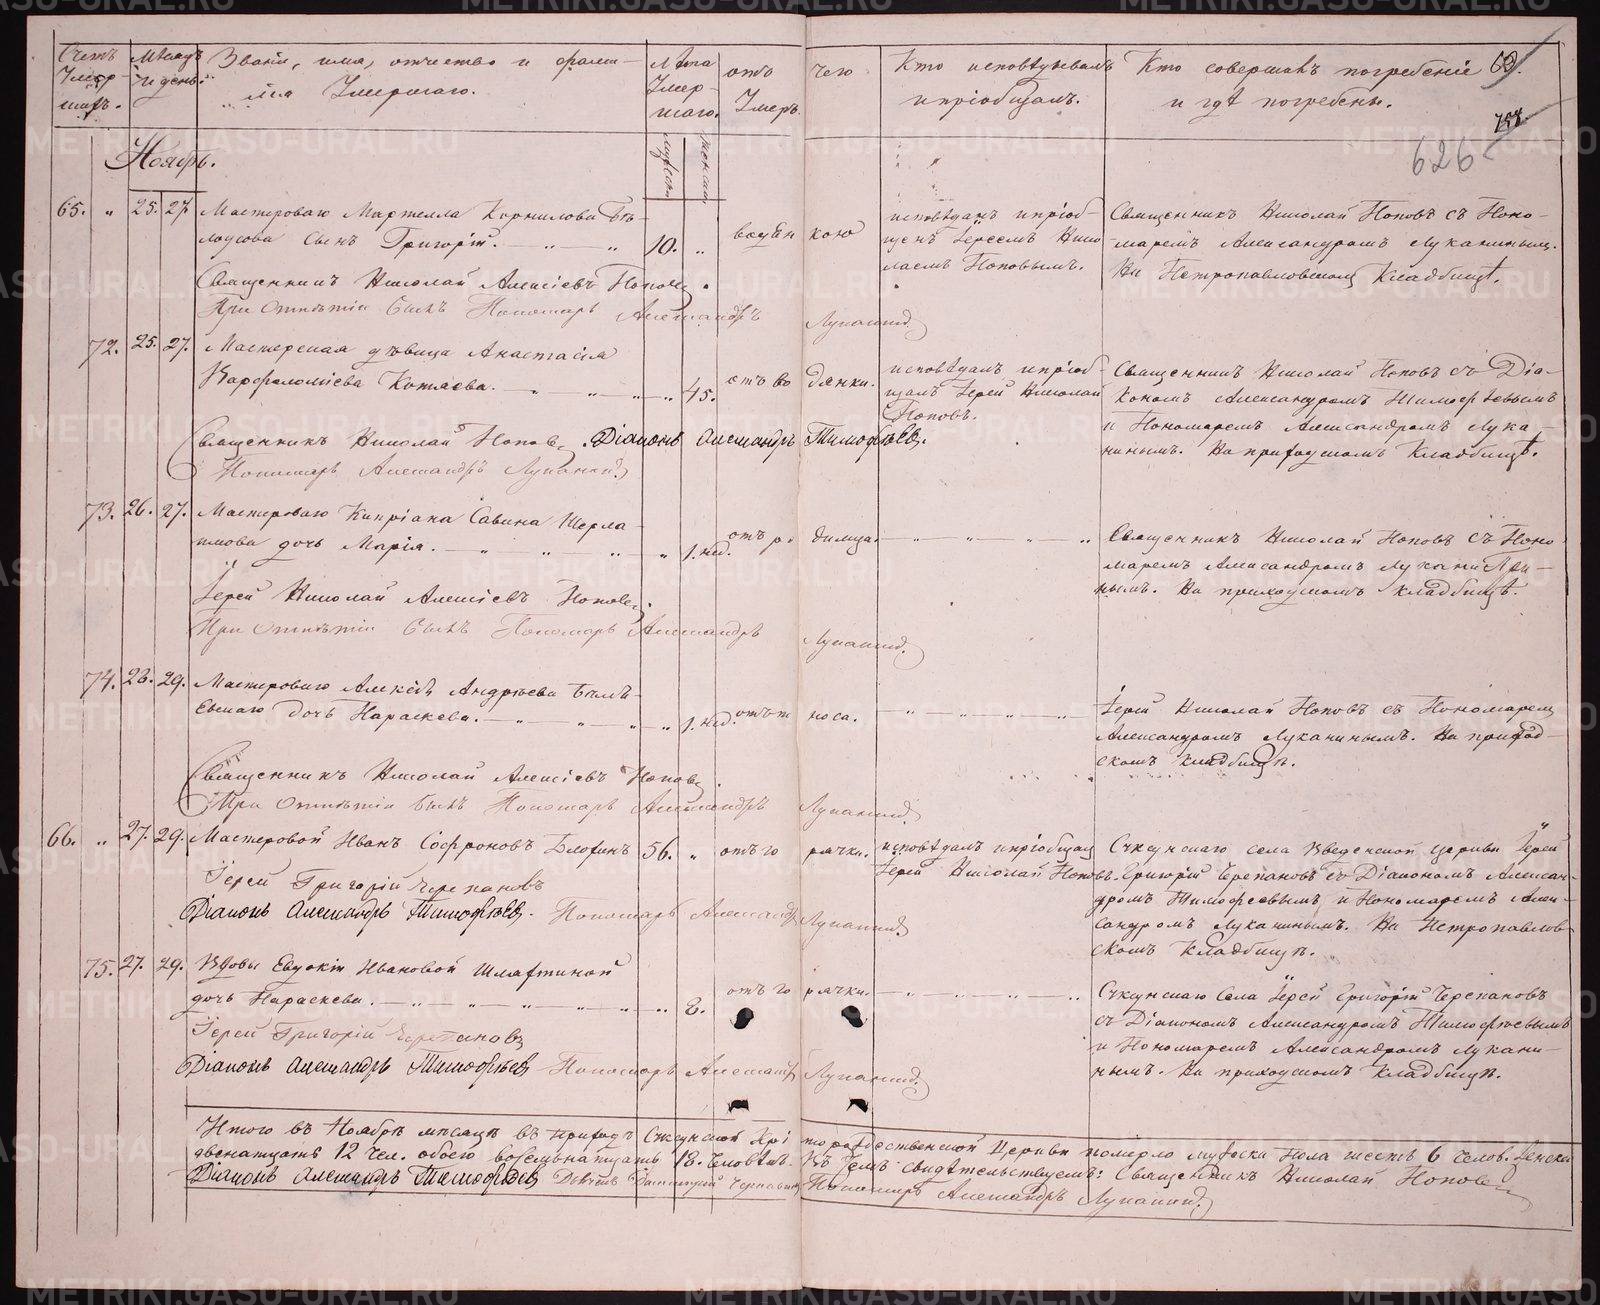 Счетъ Умер-шихъ.
Мѣсяцъ и день.
Званіе, имя, отчество и фами-
лія Умершаго.
Лѣта Умер-шаго.
отъ чего Умеръ.
Кто исповѣдывалъ
и пріобщалъ.
Кто совершалъ погребеніе
и гдѣ погребены.
626
Ноябрь.
мужеска
женска
65. " 25. 27. Мастероваго Корнилова Бѣ-
лоусова сынъ Григорій. 10. "
исповѣданъ и пріоб-
щенъ Іереемъ Нико-
лаемъ Поповымъ.
Священникъ Николай Поповъ съ Поно-
маремъ Александромъ Луканинымъ.
На Петропавловскомъ Кладбищѣ.
Священникъ Николай Алексіевъ Поповъ.
При отпѣтіи былъ Пономарь Александръ Луканинъ
72. 25. 27. Мастерская дѣвица Анастасія
Варфоломіева Котяева. 45. отъ водянки.
исповѣдалъ и пріоб-
щалъ Іерей Николай
Поповъ.
Священникъ Николай Поповъ съ Діа-
кономъ Александромъ Тимофѣевымъ
и Пономаремъ Александромъ Лука-
нинымъ. На приходскомъ Кладбищѣ.
Священникъ Николай Поповъ. Діаконъ Александръ Тимофѣевъ.
Пономарь Александръ Луканинъ
73. 26. 27. Мастероваго Кипріана Савина
дочь Марія. " 1. нед. отъ родимца.
Священникъ Николай Поповъ съ Поно-
маремъ Александромъ Лукани
нымъ. На приходскомъ кладбищѣ.
Іерей Николай Алексіевъ Поповъ.
При отпѣтіи былъ Пономарь Александръ Луканинъ
74. 28. 29. Мастероваго Алексѣя Андреева
дочь Параскева. " 1. нед. отъ поноса.
Іерей Николай Поповъ съ Пономаремъ
Александромъ Луканинымъ. На приход-
скомъ кладбищѣ.
Священникъ Николай Алексіевъ Поповъ.
При отпѣтіи былъ Пономарь Александръ Луканинъ
66. " 27. 29. Мастеровой Иванъ Софроновъ 56. " отъ горячки.
исповѣдалъ и пріобщалъ
Іерей Николай Поповъ.
села Введенской церкви Іерей
Григорій Черепановъ съ Діакономъ Алексан-
дромъ Тимофеевымъ и Пономаремъ Алек-
сандромъ Луканинымъ. На Петропавлов-
скомъ Кладбищѣ.
Іерей Григорій Черепановъ
Діаконъ Александръ Тимофѣевъ. Пономарь Александръ Луканинъ
75. 27. 29. Вдовы Евдокіи Ивановой Шлахтиной
дочь Параскева. " 8. отъ горячки.
села Іерей Григорій Черепановъ
съ Діакономъ Александромъ Тимофѣевымъ
и Пономаремъ Александромъ Лукани-
нымъ. На приходскомъ Кладбищѣ.
Іерей Григорій Черепановъ
Діаконъ Александръ Тимофѣевъ Пономарь Александръ Луканинъ
Итого въ Ноябрѣ мѣсяцѣ въ приходѣ Христорождественской Церкви померло мужеска пола шесть 6 челов. женска
двенатцать 12 чел. обоего восемьнатцать 18. Человѣкъ. Въ чемъ свидѣтельствуемъ: Священникъ Николай Поповъ
Діаконъ Александръ Тимофѣевъ Пономарь Александръ Луканинъ
METRIKI.GASO-URAL.RU